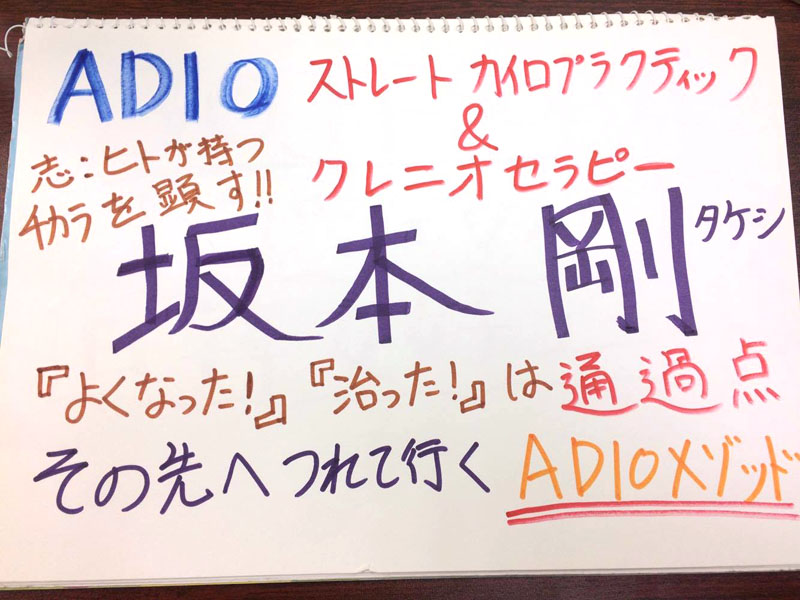 ADIO ストレートカイロプラクティック
&
クレニオセラピー
志:ヒトが持つ
チカラを顕す!!
坂本剛 タケシ
『よくなった!』『治った!』は通過点
その先へつれて行く ADIOメゾッド